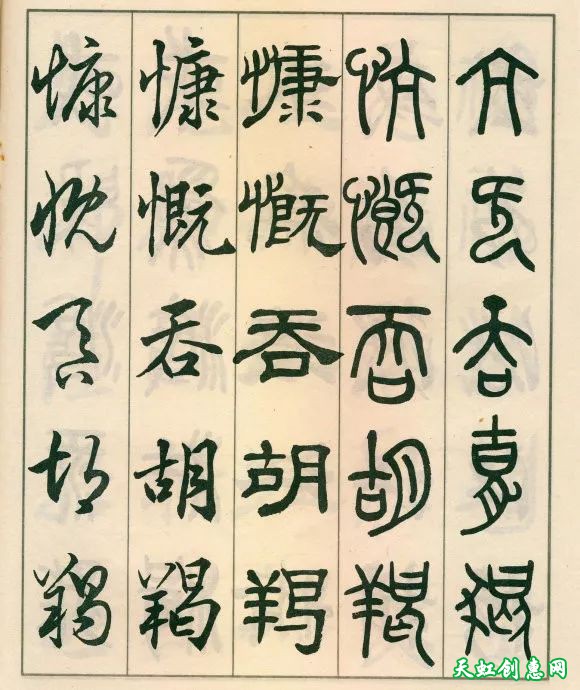 吞胡羯
忼慨吞胡羯
慷慨吞胡羯
慷慨吞胡羯
慷慨吞胡羯
天虹创惠网